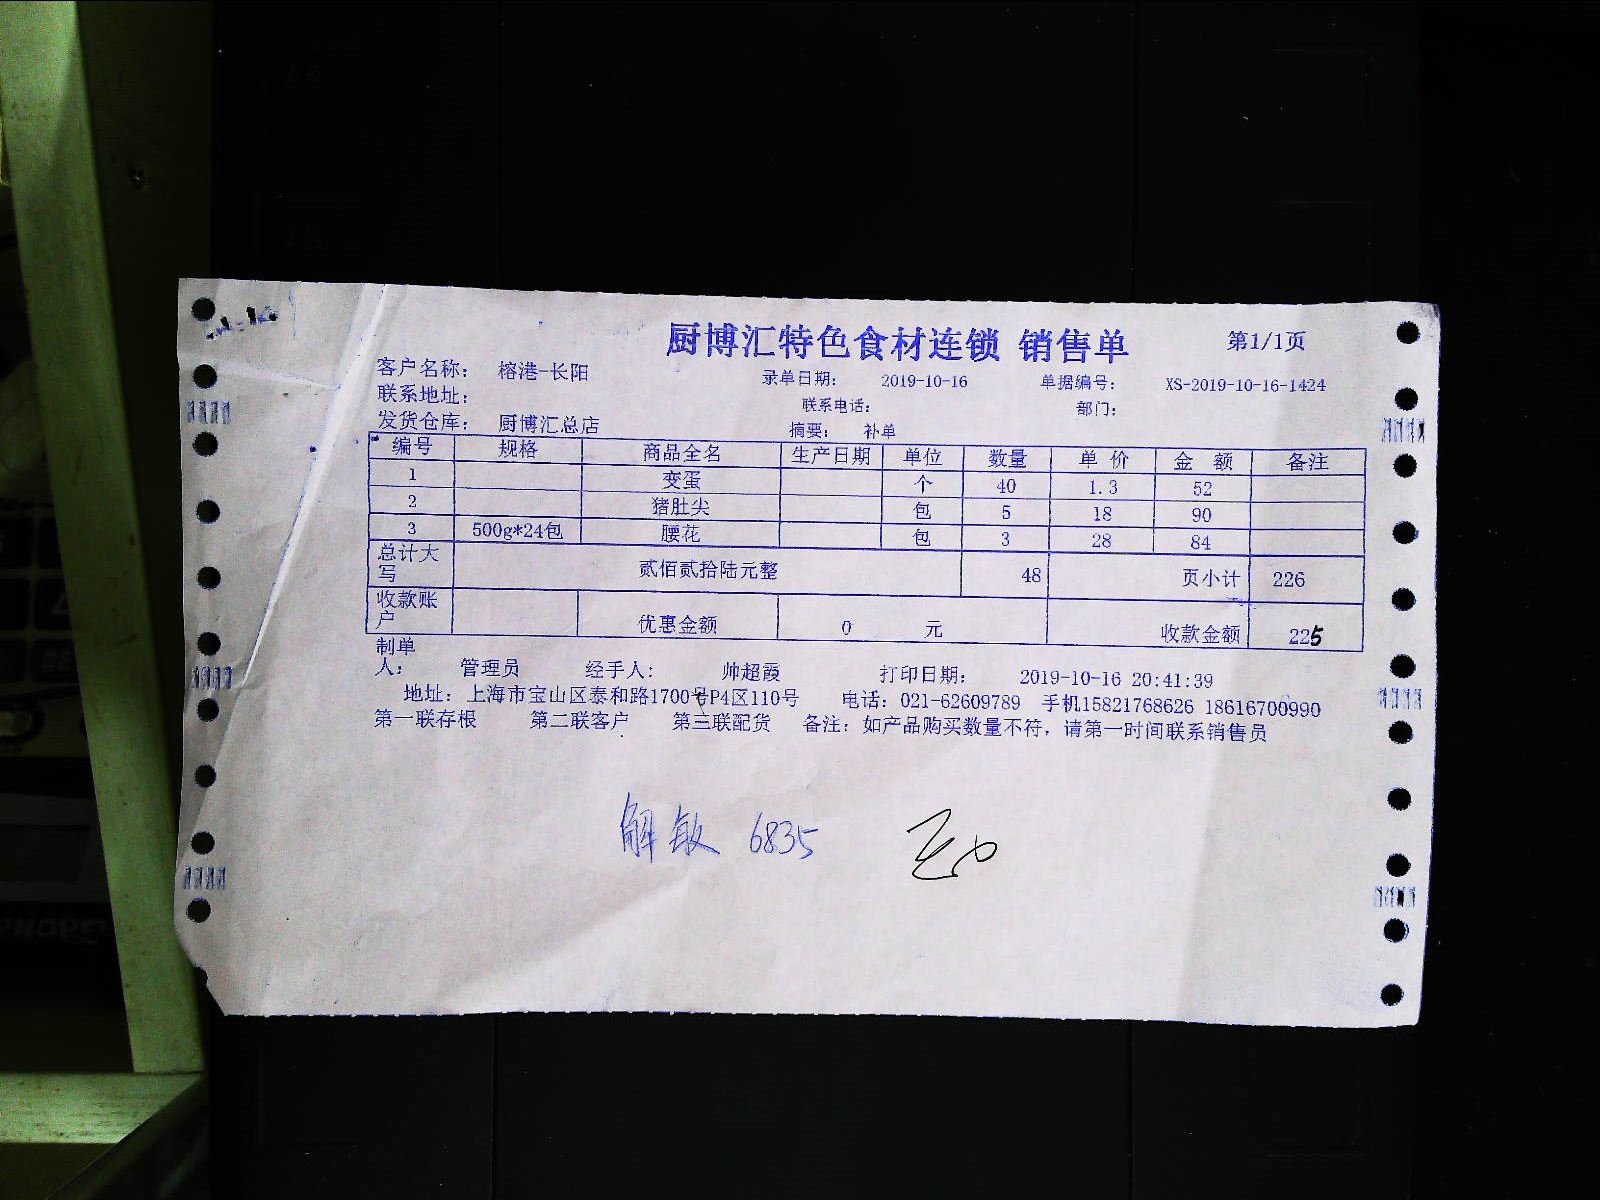 厨博汇特色食材连锁 销售单 第1/1页
客户名称： 榕港-长阳 录单日期： 2019-10-16 单据编号： XS-2019-10-16-1424
联系地址： 联系电话： 部门：
发货仓库： 厨博汇总店 摘要： 补单
编号 规格 商品全名 生产日期 单位 数量 单 价 金 额 备注
1 变蛋 个 40 1.3 52
2 猪肚尖 包 5 18 90
3 500g*24包 腰花 包 3 28 84
总计大写 贰佰贰拾陆元整 48 页小计 226
收款账户 优惠金额 0 元 收款金额 225
制单人： 管理员 经手人： 帅超霞 打印日期： 2019-10-16 20:41:39
地址：上海市宝山区泰和路1700号P4区110号 电话：021-62609789 手机15821768626 18616700990
第一联存根 第二联客户 第三联配货 备注：如产品购买数量不符，请第一时间联系销售员
解敏 6835